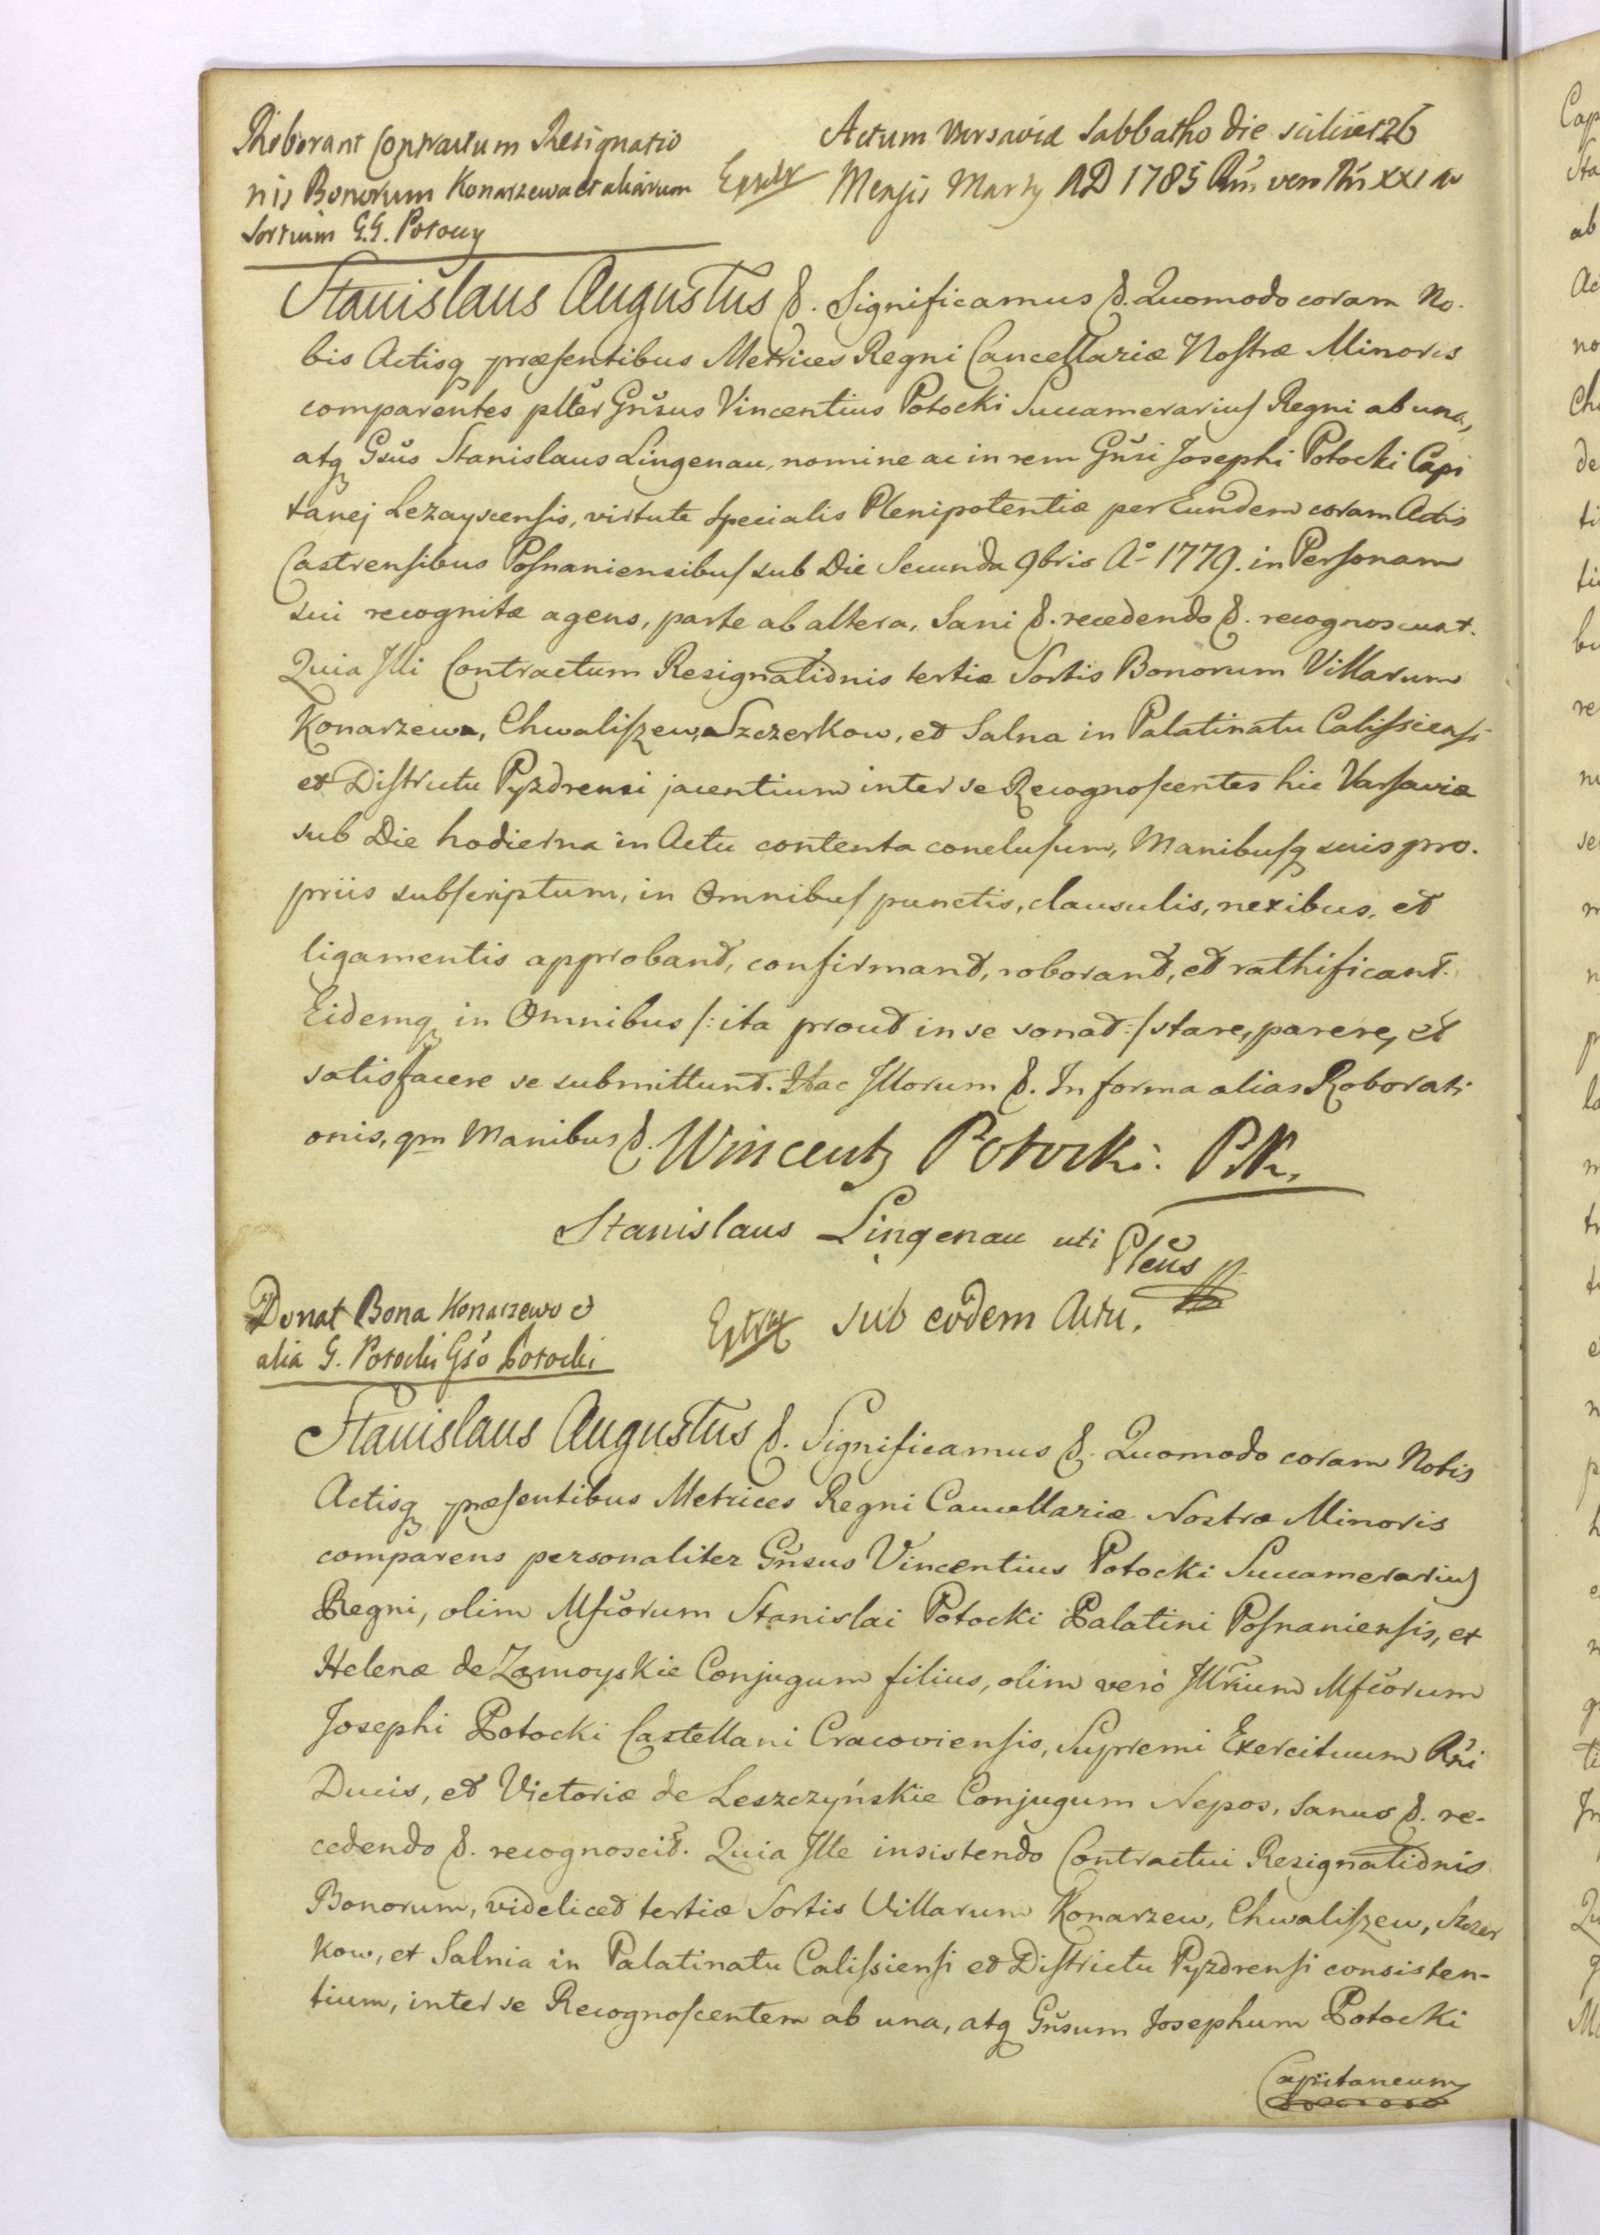 Roborant Contractum Resignatio
nis Bonorum Konarzewa et aliarum
Sortium G.G. Potoccy
Extr
Actum Varsaviæ Sabbatho die scilicet 26
Mensis Marty AD 1785 Rñi vero Rñi XXI ao
Stanislaus Augustus &. Significamus &. Quomodo coram No-
bis Actisq præsentibus Metrices Regni Cancellariæ Nostræ Minoris
comparentes plter Gñsus Vincentius Potocki Succamerarius Regni ab una,
atq Gsus Stanislaus Lingenau, nomine ac in rem Gñsi Josephi Potocki Capi
tanej Lezayscensis, virtute specialis Plenipotentiæ per Eundem coram Actis
Castrensibus Posnaniensibus sub Die Secunda 9bris Ao 1779. in Personam
sui recognitæ agens, parte ab altera, Sani &. recedendo &. recognoscunt.
Quia Illi Contractum Resignationis tertiæ Sortis Bonorum Villarum
Konarzewa, Chwaliszewa Szczerkow, et Salna in Palatinatu Calissiensi
et Districtu Pyzdrensi jacentium inter se Recognoscentes hic Varsaviæ
sub Die hodierna in Actu contenta conclusum, Manibusq suis pro-
priis subscriptum, in Omnibus punctis, clausulis, nexibus, et
ligamentis approbant, confirmant, roborant, et rathificant.
Eidemq in Omnibus /: ita prout in se sonat :/ stare, parere, et
satisfacere se submittunt. Hac Illorum &. In forma alias Roborati
onis, qm Manibus &. Wincenty Potocki. P.K.
Stanislaus Lingenau uti Pleñs
Donat Bona Konarzewo et
alia G. Potocki Gso Potocki
Extr
Sub eodem Actu.
Stanislaus Augustus &. Significamus &. Quomodo coram Nobis
Actisq præsentibus Metrices Regni Cancellariæ Nostræ Minoris
comparens personaliter Gñsus Vincentius Potocki Succamerarius
Regni, olim Mfcorum Stanislai Potocki Palatini Posnaniensis, et
Helenæ de Zamoyskie Conjugum filius, olim vero Illrium Mfcorum
Josephi Potocki Castellani Cracoviensis, Supremi Exercituum Rñi
Ducis, et Victoriæ de Leszczyńskie Conjugum Nepos, Sanus &. re-
cedendo &. recognoscit. Quia Ille insistendo Contractui Resignationis
Bonorum, videlicet tertiæ Sortis Villarum Konarzew, Chwaliszew, Szczer
kow, et Salnia in Palatinatu Calissiensi et Districtu Pyzdrensi consisten-
tium, inter se Recognoscentem ab una, atq Gñsum Josephum Potocki
Capitaneum